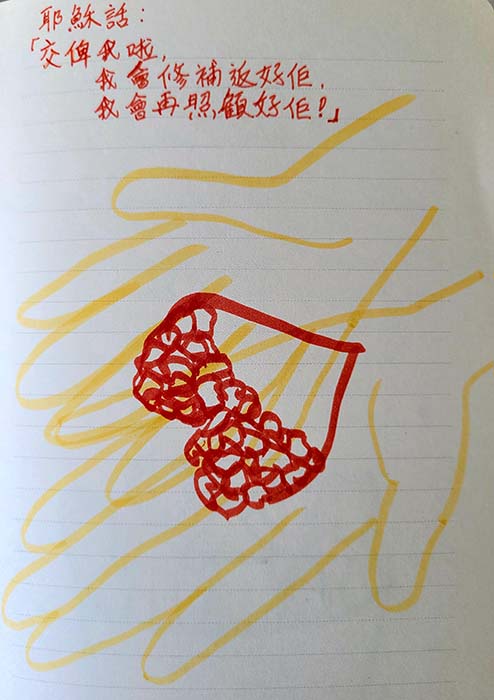 耶穌話：
「交俾我啦，
我會修補返好佢，
我會再照顧好佢！」